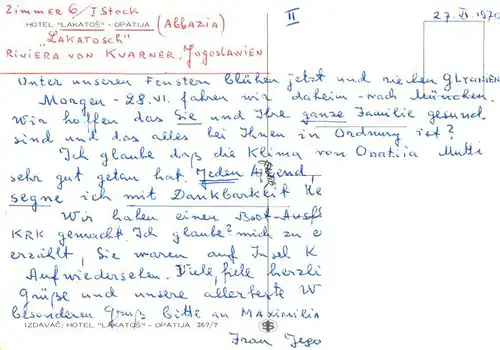 Zimmer 6/I Stock
HOTEL "LAKATOŠ" - OPATIJA (Abbazia)
"Lakatosch"
Riviera von Kvarner, Jugoslawien
II
27. VI. 1970
Unter unseren Fenstern blühen jetzt und riechen Glycinien
Morgen - 28. VI. fahren wir daheim - nach München.
Wir hoffen das Sie und Ihre ganze Familie gesund
sind und das alles bei Ihnen in Ordnung ist?
Ich glaube daß die Klima von Opatija Mutti
sehr gut getan hat. Jeden Abend,
segne ich mit Dankbarkeit He
Wir haben einen Boot-Ausfl
KRK gemacht. Ich glaube? mich zu e
erzählt, Sie waren auf Insel K
Aufwiedersehen. Viele, fiele herzli
Grüße und unsere allerbeste W
besonderen Gruß bitte an Maximilia
IZDAVAČ: HOTEL "LAKATOŠ" - OPATIJA 267/7